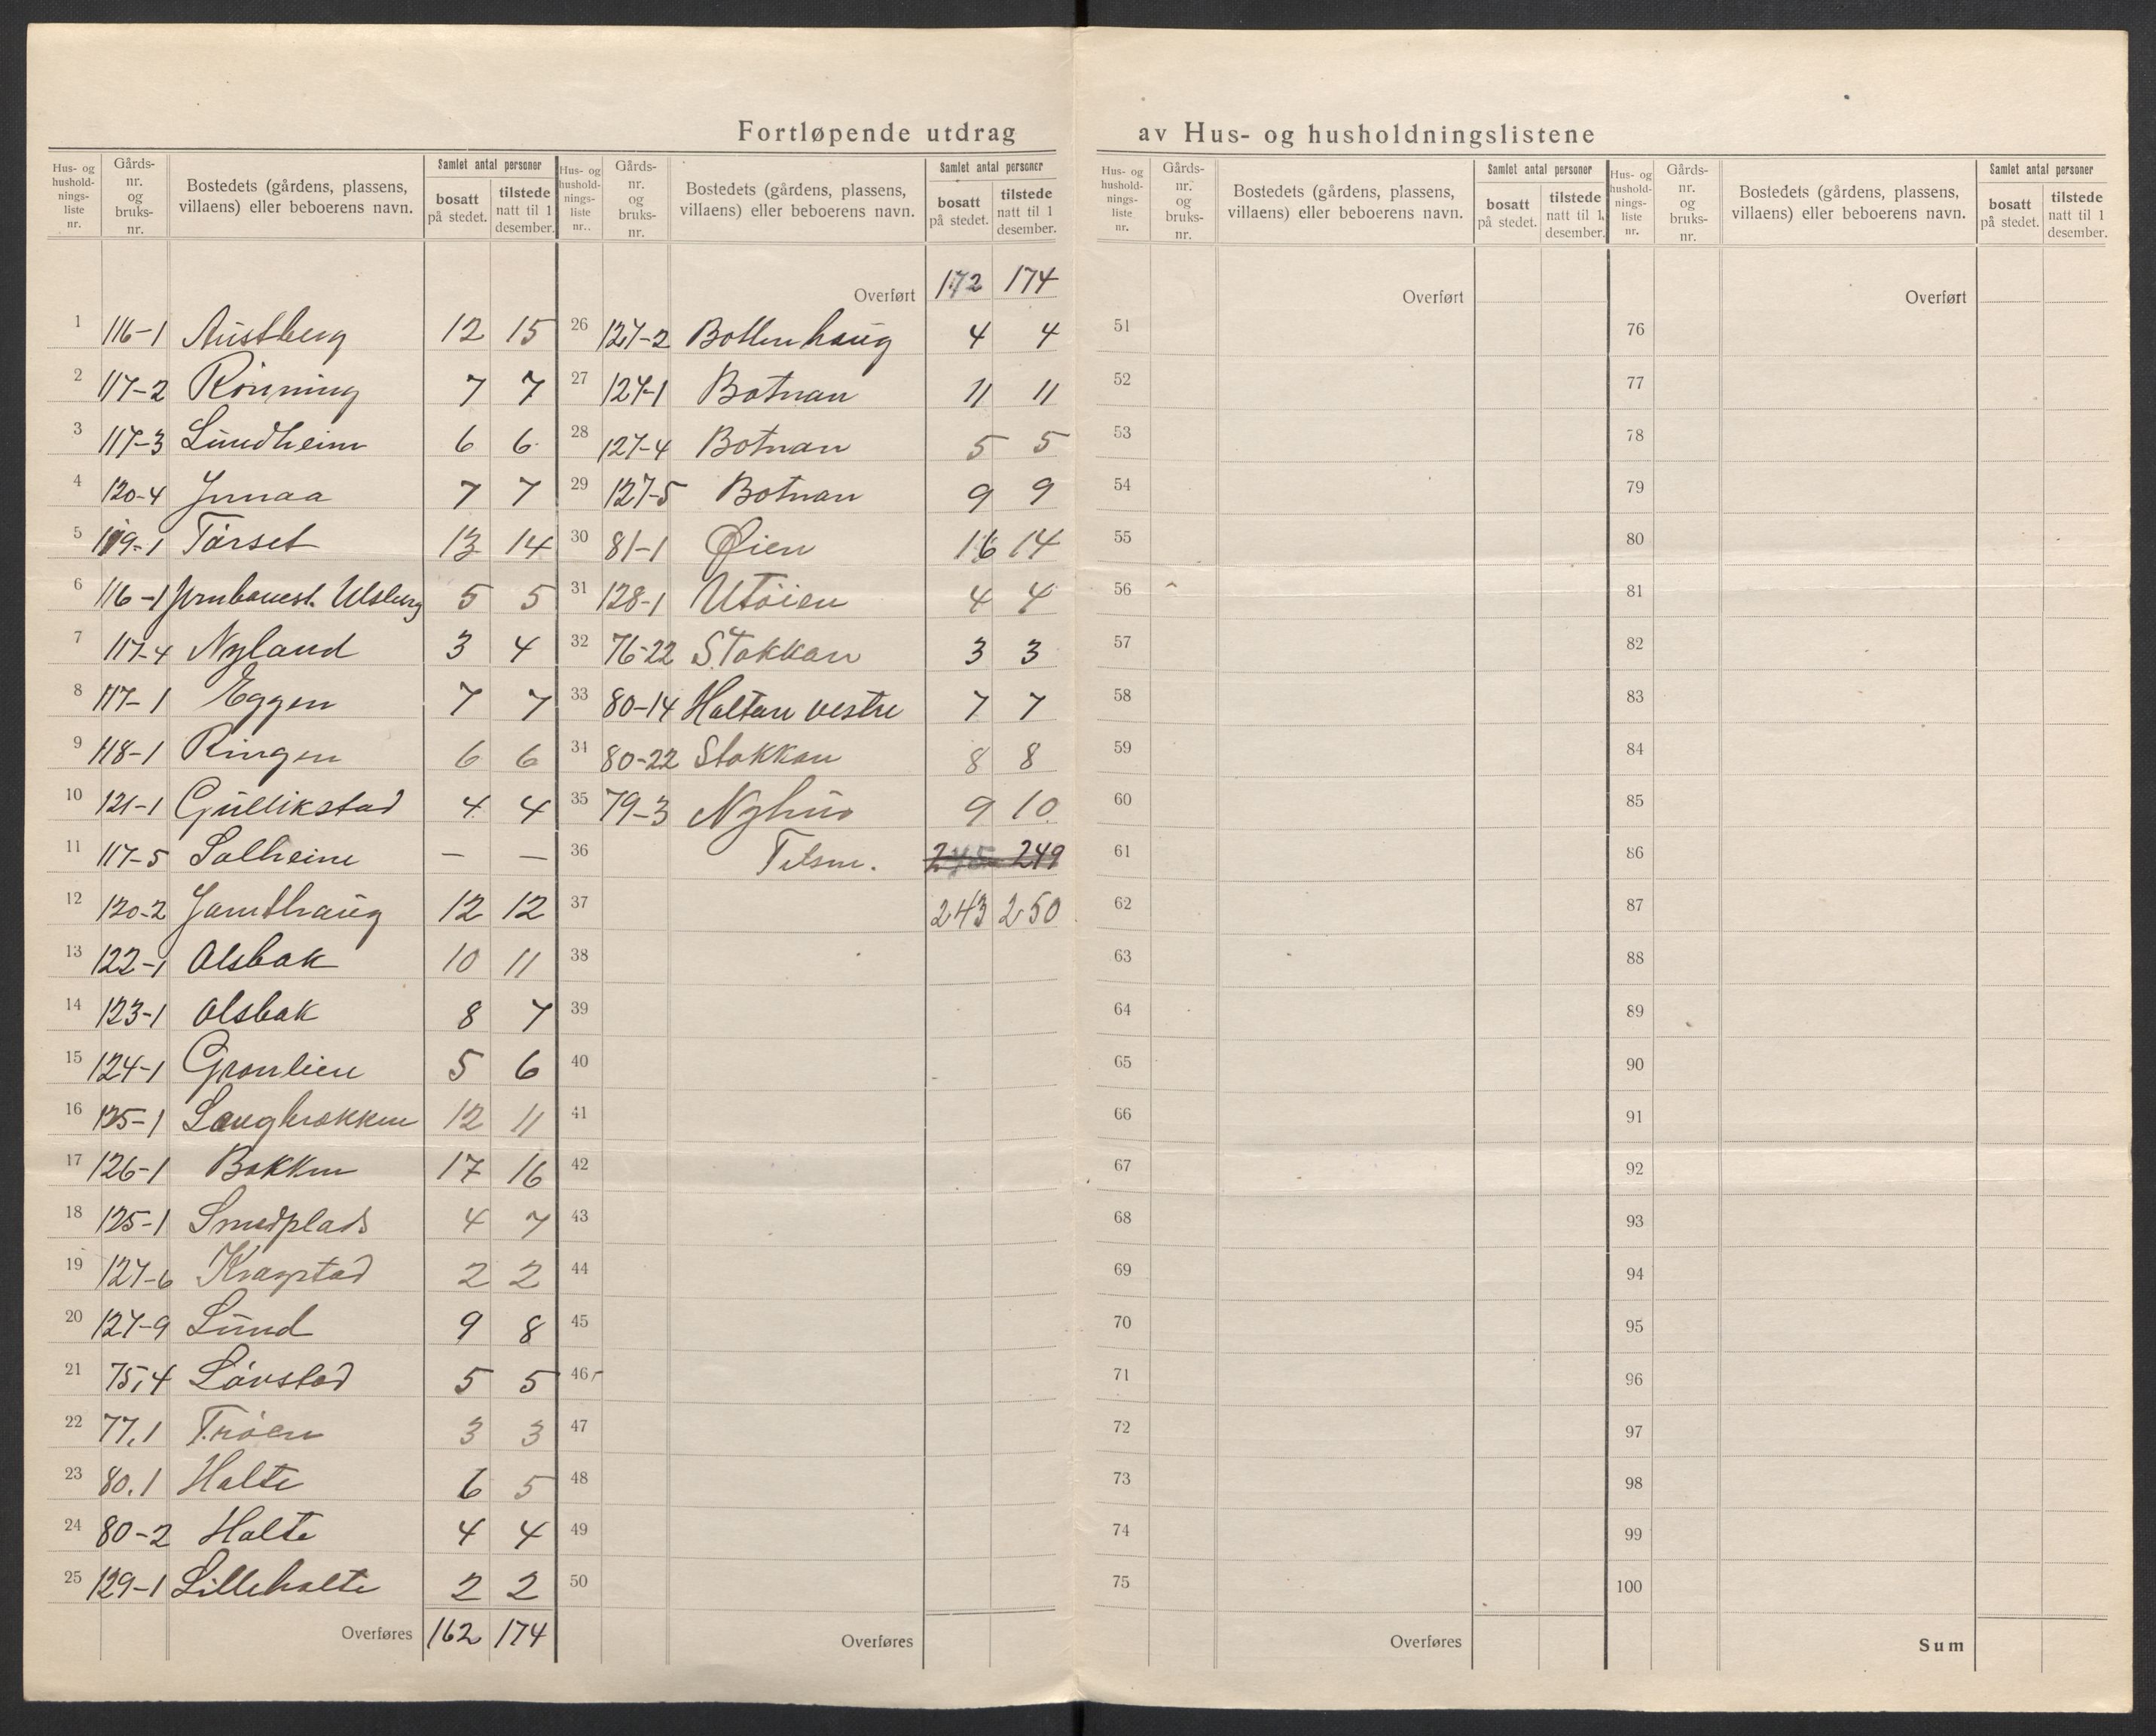 Fortløpende utdrag av Hus- og husholdningslistene
Hus- og hushold- nings- liste nr.
Gårds- nr. og bruks- nr.
Bostedets (gårdens, plassens, villaens) eller beboerens navn.
Samlet antal personer
bosatt på stedet.
tilstede natt til 1 desember.
1 116-1 Austberg 12 15
2 117-2 Rönning 7 7
3 117-3 Lundheim 6 6
4 120-4 Innaa 7 7
5 119-1 Törset 13 14
6 116-1 Jernbanest. Ulsberg 5 5
7 117-4 Nyland 3 4
8 117-1 Eggen 7 7
9 118-1 Ringen 6 6
10 121-1 Gullikstad 4 4
11 117-5 Solheim — —
12 120-2 Jamthaug 12 12
13 122-1 Olsbak 10 11
14 123-1 Olsbak 8 7
15 124-1 Gronlien 5 6
16 125-1 Langbrekken 12 11
17 126-1 Bakken 17 16
18 125-1 Smedplads 4 7
19 127-6 Kragstad 2 2
20 127-9 Lund 9 8
21 75,4 Lövstad 5 5
22 77,1 Tröen 3 3
23 80.1 Holte 6 5
24 80-2 Holte 4 4
25 129-1 Lilleholte 2 2
Overføres 162 174
Hus- og hushold- nings- liste nr..
Gårds- nr. og bruks- nr.
Bostedets (gårdens, plassens, villaens) eller beboerens navn.
Samlet antal personer
bosatt på stedet.
tilstede natt til 1 desember.
Overført 172 174
26 127-2 Bottenhaug 4 4
27 127-1 Botnan 11 11
28 127-4 Botnan 5 5
29 127-5 Botnan 9 9
30 81-1 Øien 16 14
31 128-1 Utöien 4 4
32 76-22 Stokkan 3 3
33 80-14 Holtan vestre 7 7
34 80-22 Stokkan 8 8
35 79-3 Nyhus 9 10
36 Tilsm. 245 249
37 243 250
38
39
40
41
42
43
44
45
46
47
48
49
50
Overføres
Hus- og hushold- nings- liste nr.
Gårds- nr. og bruks- nr.
Bostedets (gårdens, plassens, villaens) eller beboerens navn.
Samlet antal personer
bosatt på stedet.
tilstede natt til 1. desember.
Overført
51
52
53
54
55
56
57
58
59
60
61
62
63
64
65
66
67
68
69
70
71
72
73
74
75
Overføres
Hus- og hushold- nings- liste nr.
Gårds- nr. og bruks- nr.
Bostedets (gårdens, plassens, villaens) eller beboerens navn.
Samlet antal personer
bosatt på stedet.
tilstede natt til 1 desember.
Overført
76
77
78
79
80
81
82
83
84
85
86
87
88
89
90
91
92
93
94
95
96
97
98
99
100
Sum